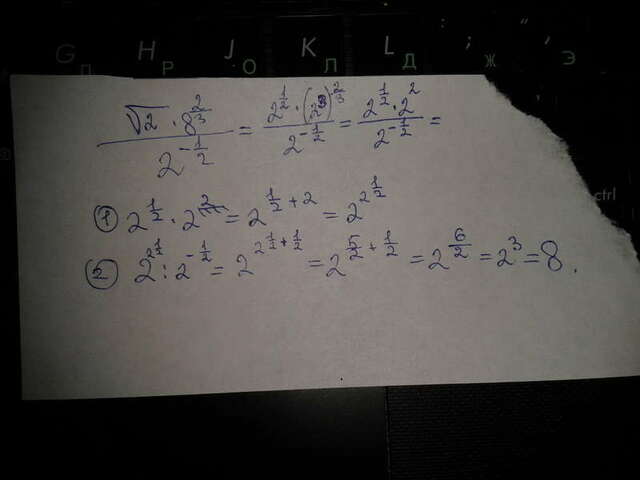 G П H Р J О K Л L Д : ; Ж " ' Э
√2 · 8^(2/3) / 2^(-1/2) = 2^(1/2) · (2^3)^(2/3) / 2^(-1/2) = 2^(1/2) · 2^2 / 2^(-1/2) =
ctrl
① 2^(1/2) · 2^2 = 2^(1/2 + 2) = 2^(2 1/2)
② 2^(2 1/2) : 2^(-1/2) = 2^(2 1/2 + 1/2) = 2^(5/2 + 1/2) = 2^(6/2) = 2^3 = 8.